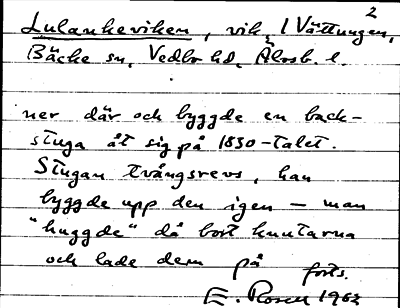 2
Lulankeviken, vik, i Vättungen,
Bäcke sn, Vedbo hd, Älvsb. l.
ner där och byggde en back-
stuga åt sig på 1830-talet.
Stugan tvångsrevs, han
byggde upp den igen – man
"huggde" då bort knutarna
och lade dem på forts.
E. Rosen 1962